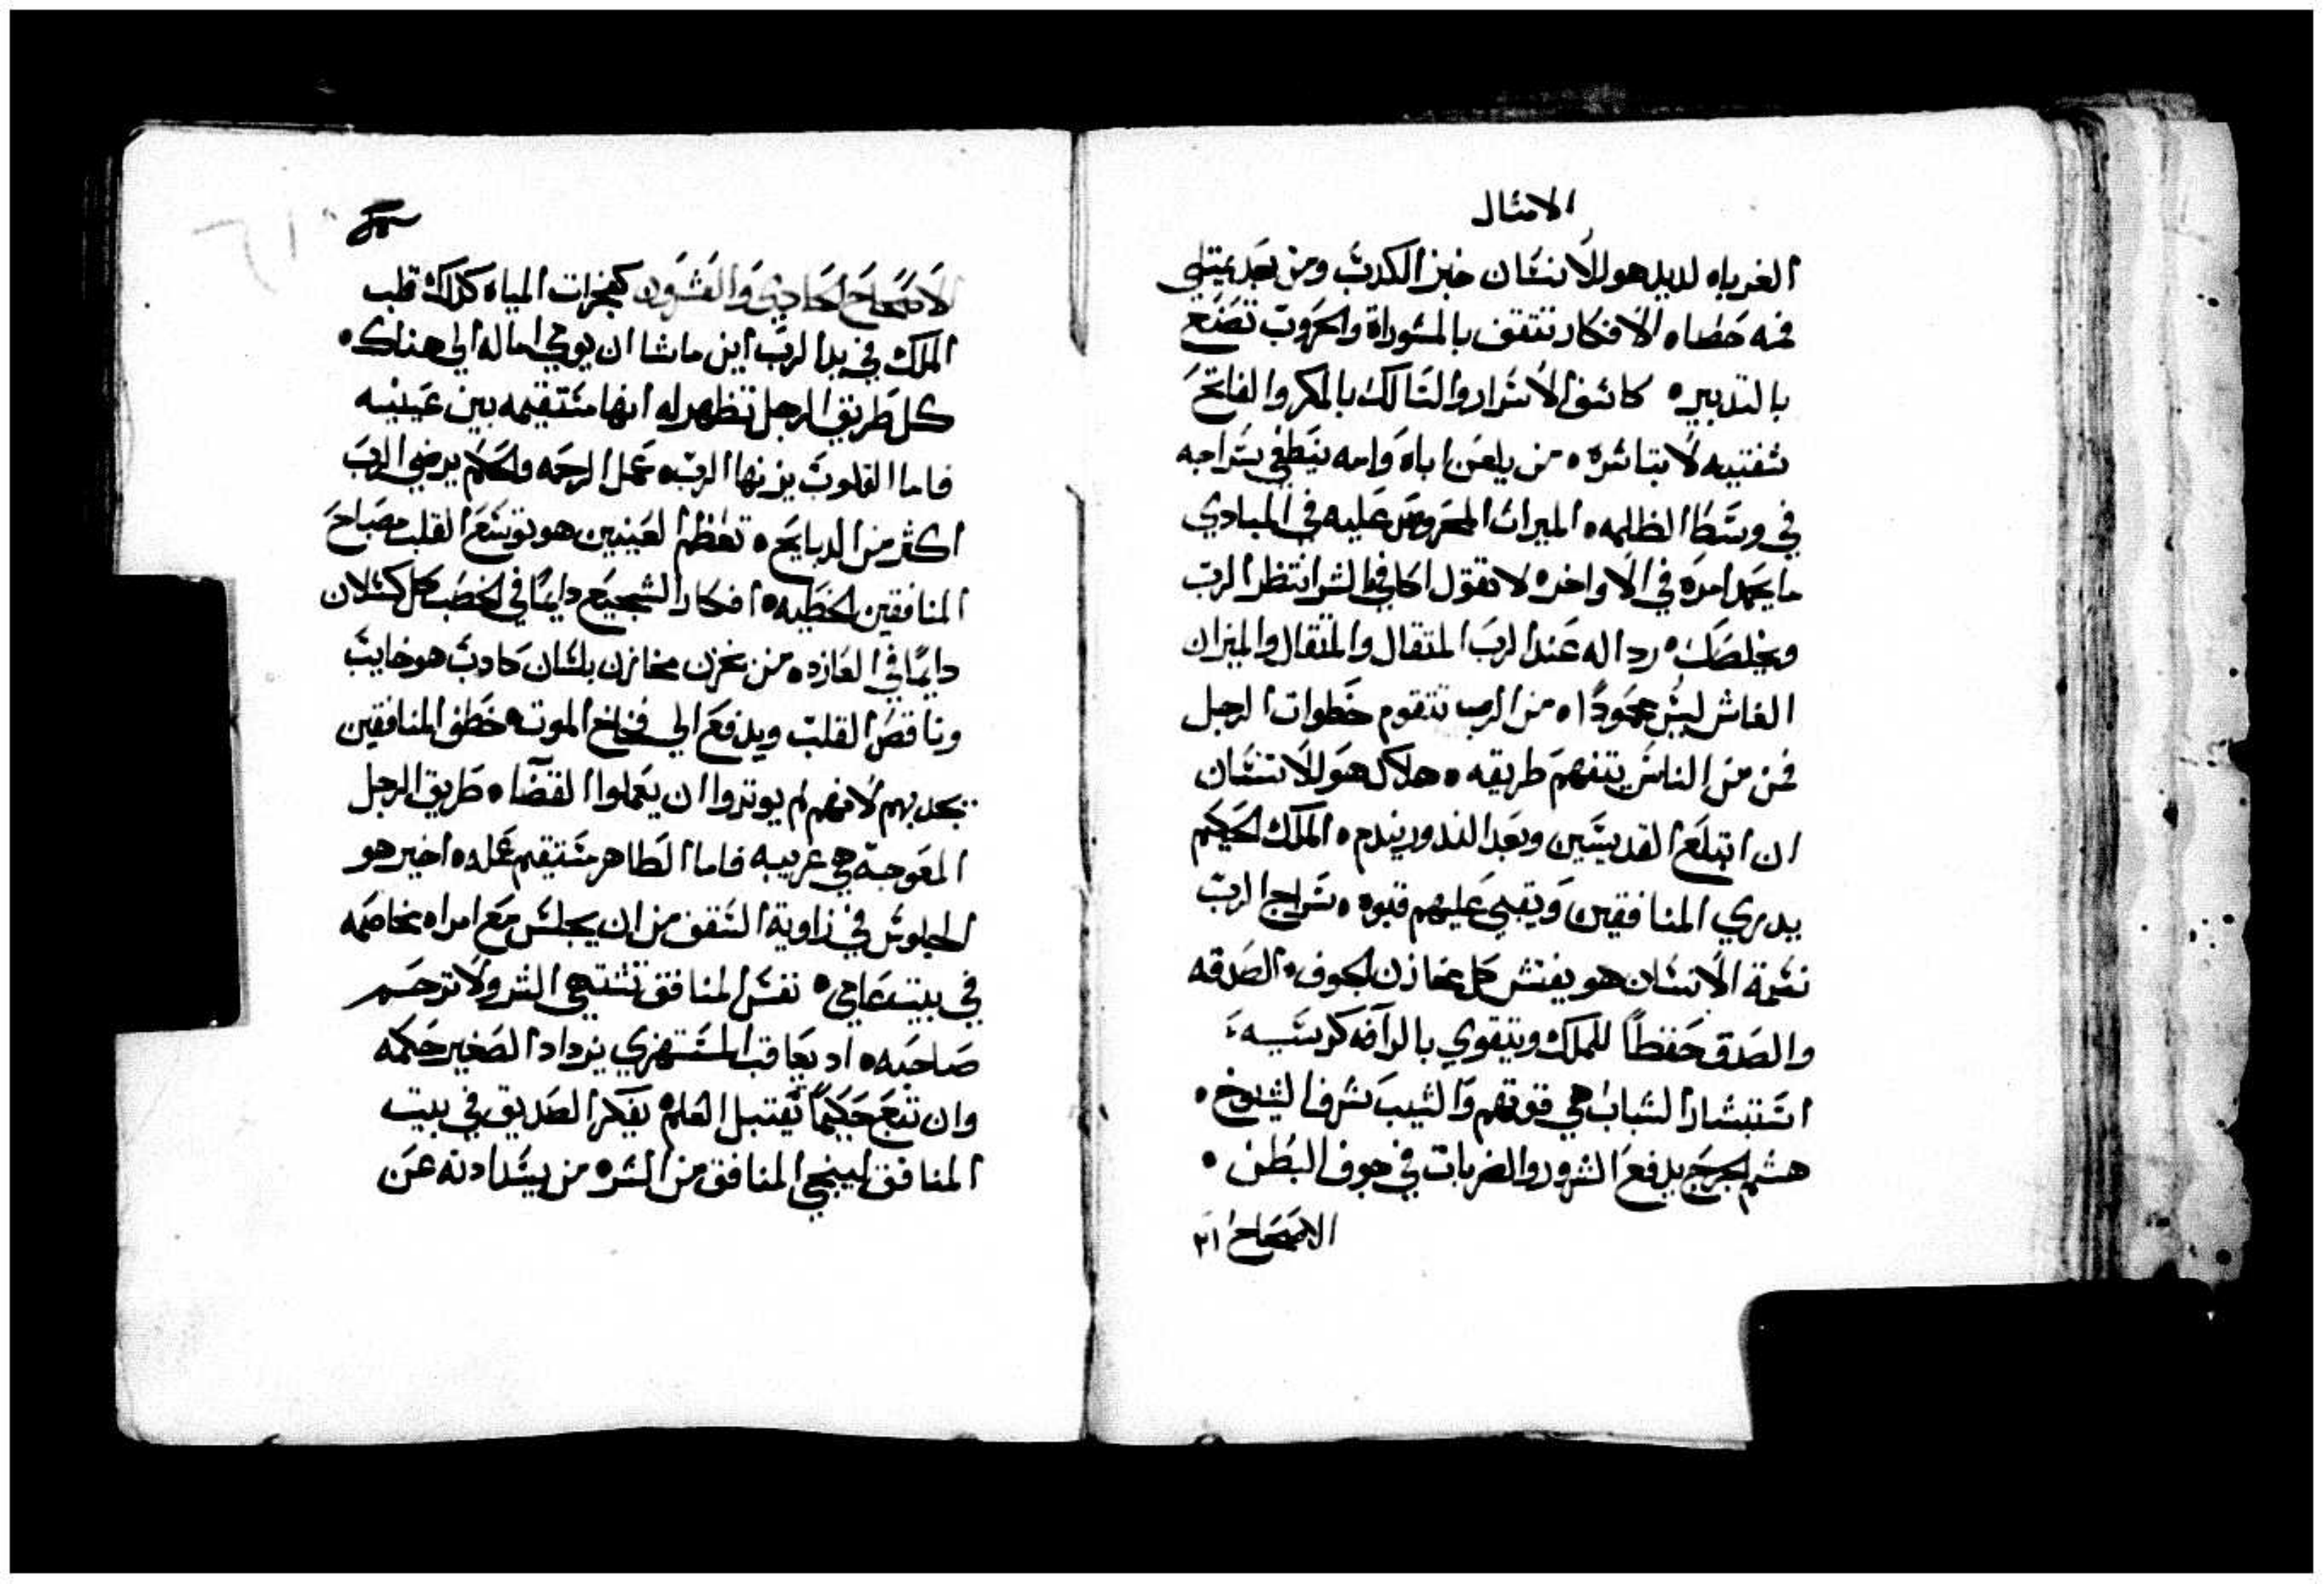 الامثال
الغرباه لديد هو للانسان خبز الكدب ومن بعد يمتلي
فمه حصاه الافكار تتقف بالمشوراة والحروب تصنع
بالتدبيره كاشف الاسرار والسالك بالمكر والفاتح
شفتيه لا تباشره من يلعن اباه وامه ينطفي سراجه
في وسط الظلمه الميراث المحروص عليه في المبادي
ما يحمد امره في الاواخره لا تقول اكافي الشر انتظر الرب
ويخلصك رداله عند الرب المتقال والمتقال والميزان
الغاش ليس محموداه من الرب تتقوم خطوات الرجل
فمن من الناس يتفهم طريقه هلاك هو للانسان
ان ابتلع القديسين وبعد الندور يندم الملك الحكيم
يدري المنافقين ويقبي عليهم قبوه سراج الرب
نسمة الانسان هو يفتش كل مخازن الجوف الصدقه
والصدق حفظًا للملك ويتقوي بالرآفه كرسيه
استبشار الشباب هي قوتهم والشيب شرف الشيوخ
هشم الجرح يدفع الشرور والضربات في جوف البطن
الاصحاح ٢١
الاصحاح الحادي والعشرون كفجرات المياه كدلك قلب
الملك في يد الرب اين ما شا ان يوجي اماله الي هناك
كل طريق الرجل تظهر له انها مستقيمه بين عينيه
فاما القلوب يزنها الرب عمل الرحمه والحكم يرضي الرب
اكثر من الدبايح تعظم العينين هو توسع القلب مصباح
المنافقين الخطيه افكار الشجيع دايمًا في الخصب كل كسلان
دايمًا في العازه من يخزن مخازن بلسان كادب هو خايب
وناقص القلب ويدفع الي فخاخ الموت خطف المنافقين
يجدبهم لانهم لم يوتروا ان يعملوا القضا طريق الرجل
المعوجة هي غريبه فاما الطاهر مستقيم عمله اخير هو
الجلوس في زاوية السقف من ان يجلس مع امراه مخاصمه
في بيت عامي نفس المنافق تشتهي الشر ولا ترحم
صاحبه اد يعاقب المستهزي يزداد الصغير حكمه
وان تتبع حكيمًا يقتبل العلم يفكر الصديق في بيت
المنافق لينجي المنافق من الشره من يسد ادنه عن